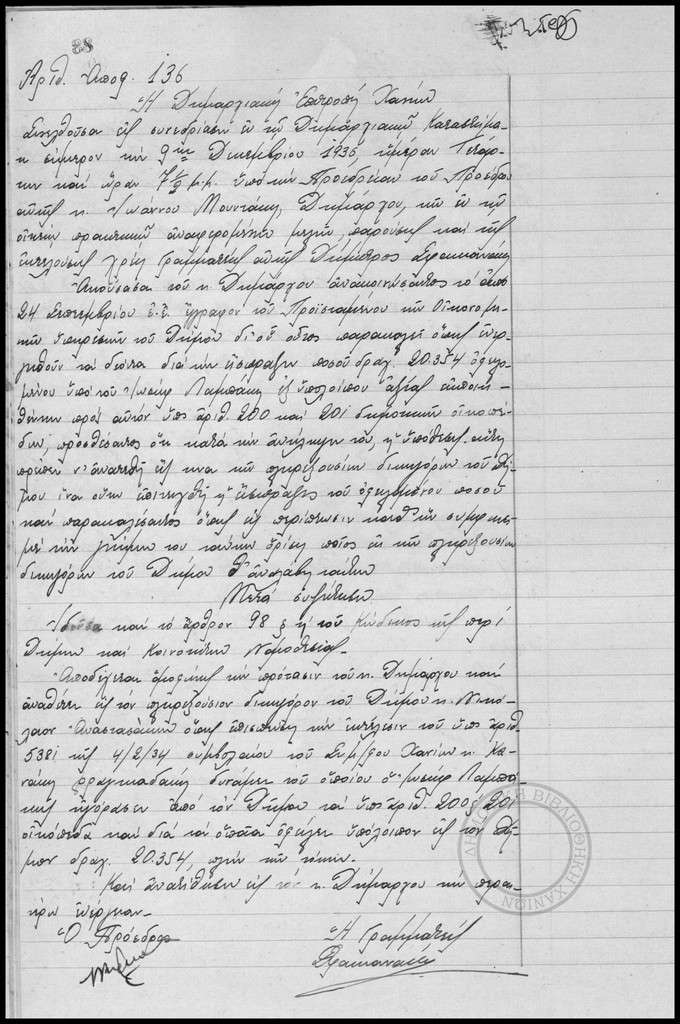 88
Αριθ. Αποφ. 136
Ἡ Δημαρχιακή Ἐπιτροπή Χανίων
Συνελθοῦσα εἰς συνεδρίασιν ἐν τῷ Δημαρχιακῷ Καταστήμα-
τι σήμερον τήν 9ην Δεκεμβρίου 1936, ἡμέραν Τετάρ-
την καί ὥραν 7½ μ.μ. ὑπό τήν Προεδρείαν τοῦ Προέδρου
αὐτῆς κ. Ἰωάννου Μουντάκη, Δημάρχου, τῶν ἐν τῷ
πρακτικῷ ἀναφερομένων μελῶν, παρούσης καί τῆς
ἐκτελούσης χρέη Γραμματέως αὐτῆς
Ἀκούσασα τοῦ κ. Δημάρχου ἀνακοινώσαντος τό ἀπό
24 Σεπτεμβρίου ἐ.ἔ. ἔγγραφον τοῦ Προϊσταμένου τῆς Οἰκονομι-
κῆς ὑπηρεσίας τοῦ Δήμου δι' οὗ οὗτος παρακαλεῖ ὅπως ἐνερ-
γηθοῦν τά δέοντα διά τήν εἴσπραξιν ποσοῦ δραχ. 20.354 ὀφειλο-
μένου ὑπό τοῦ Ἰωσήφ Λαμπάκη ἐξ ὑπολοίπου ἀξίας ἐκποιη-
θέντων πρός αὐτόν ὑπ' ἀριθ. 200 καί 201 δημοτικῶν οἰκοπέ-
δων, προσθέσαντος ὅτι κατά τήν ἀντίληψίν του, ἡ ὑπόθεσις αὕτη
πρέπει ν' ἀνατεθῇ εἰς ἕνα τῶν πληρεξουσίων δικηγόρων τοῦ Δή-
μου ἵνα οὕτω ἐπιτευχθῇ ἡ εἴσπραξις τοῦ ὀφειλομένου ποσοῦ
καί παρακαλέσαντος ὅπως εἰς περίπτωσιν καθ' ἥν συμφωνεῖ
μέ τήν γνώμην του ταύτην ὁρίσῃ ποῖος ἐκ τῶν πληρεξουσίων
δικηγόρων τοῦ Δήμου θ' ἀναλάβῃ ταύτην
Μετά συζήτησιν
Ἰδοῦσα καί τό ἄρθρον 98 τοῦ Κώδικος τῆς περί
Δήμων καί Κοινοτήτων Νομοθεσίας.
Ἀποδέχεται ὁμοφώνως τήν πρότασιν τοῦ κ. Δημάρχου καί
ἀναθέτει εἰς τόν πληρεξούσιον δικηγόρον τοῦ Δήμου κ. Νικό-
λαον Ἀναστασάκην ὅπως ἐπισπεύσῃ τήν ἐκτέλεσιν τοῦ ὑπ' ἀριθ.
5381 τῆς 4/2/34 συμβολαίου τοῦ Συμ/φου Χανίων κ. Κα-
δυνάμει τοῦ ὁποίου ὁ Ἰωσήφ Λαμπά-
κης ἠγόρασεν ἀπό τόν Δῆμον τά ὑπ' ἀριθ. 200 & 201
οἰκόπεδα καί διά τά ὁποῖα ὀφείλει ὑπόλοιπον εἰς τόν Δῆ-
μον δραχ. 20.354, πλήν τῶν τόκων.
Καί ἀνατίθησιν εἰς τόν κ. Δήμαρχον τήν περαι-
τέρω ἐνέργειαν.
Ὁ Πρόεδρος
Ἡ Γραμματεύς
ΔΗΜΟΤΙΚΗ ΒΙΒΛΙΟΘΗΚΗ ΧΑΝΙΩΝ